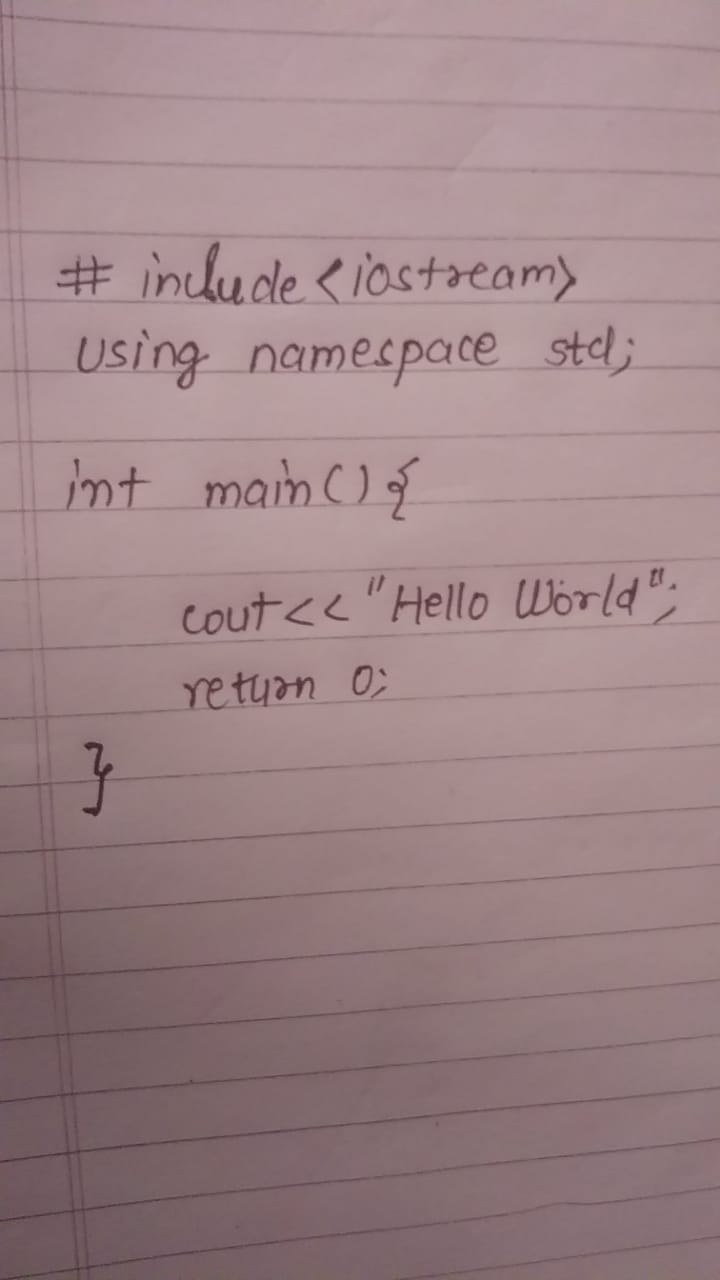 # include <iostream>
using namespace std;
int main() {
cout<< "Hello World";
return 0;
}